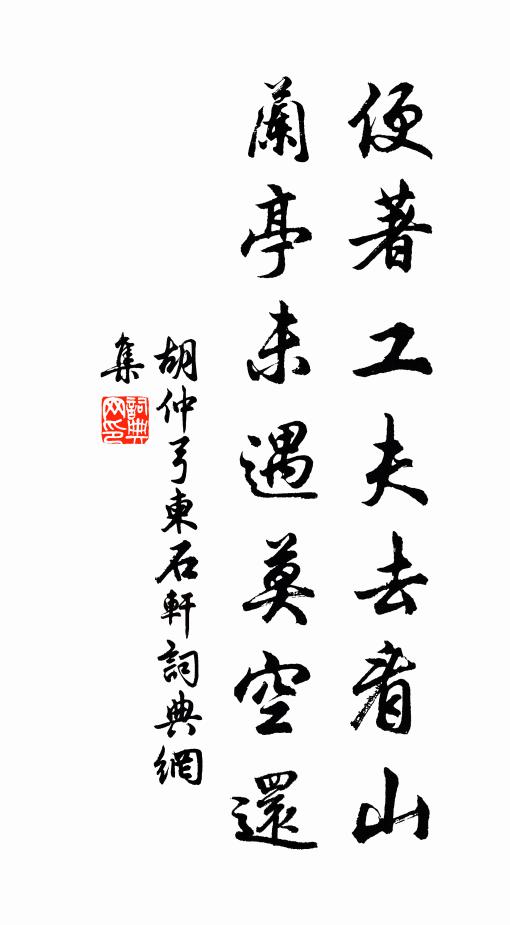 便著工夫去看山
蘭亭未遇莫空還
胡仲弓東石軒詞典網
集
詞典网印